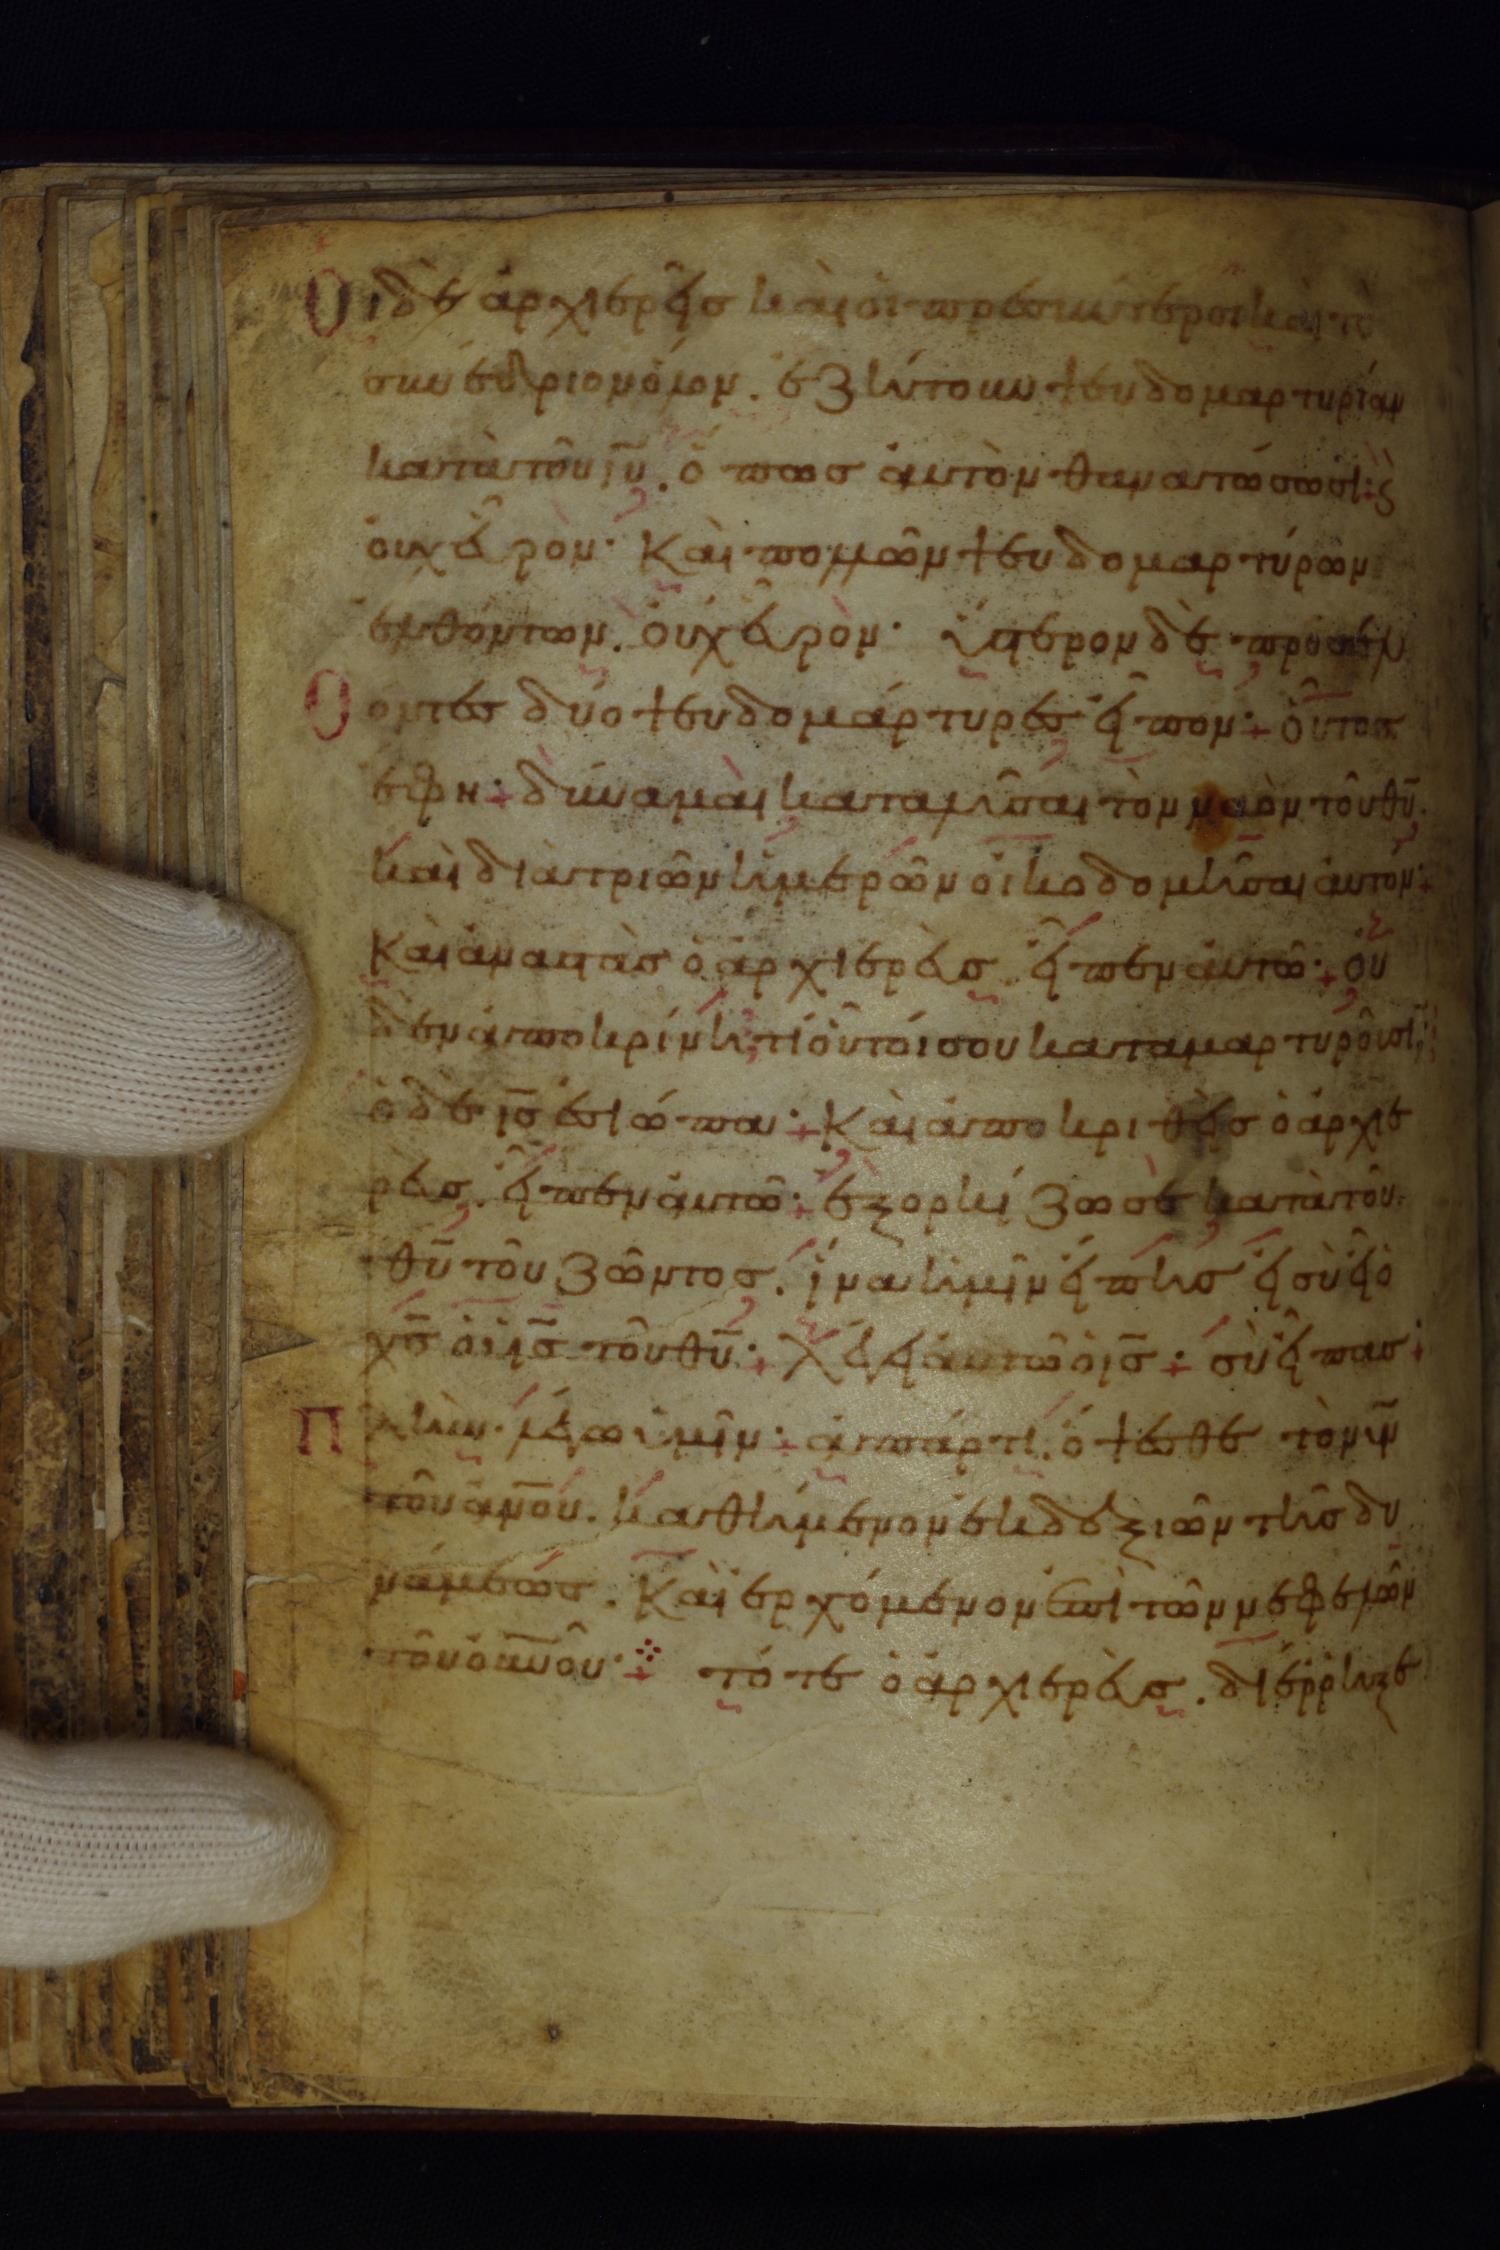 Οἱ δὲ ἀρχιερεῖς καὶ οἱ πρεσβύτεροι καὶ τὸ
συνέδριον ὅλον. ἐζήτουν ψευδομαρτυρίαν
κατὰ τοῦ ιυ̅. ὅπως αὐτὸν θανατώσωσι· ϛ
οὐχ εὗρον· Καὶ πολλῶν ψευδομαρτύρων
ἐλθόντων. οὐχ εὗρον· ὕστερον δὲ προσελ
θόντες δύο ψευδομάρτυρες εἶπον· οὗτος
ἔφη· δύναμαι καταλῦσαι τὸν ναὸν τοῦ θυ̅.
καὶ διὰ τριῶν ἡμερῶν οἰκοδομῆσαι αὐτόν·
Καὶ ἀναστὰς ὁ ἀρχιερεὺς. εἶπεν αὐτῶ· οὐ
δὲν ἀποκρίνη τί οὗτοί σου καταμαρτυροῦσι;
ὁ δὲ ις̅ ἐσιώπα· Καὶ ἀποκριθεὶς ὁ ἀρχιε
ρεὺς. εἶπεν αὐτῶ· ἐξορκίζω σὲ κατὰ τοῦ
θυ̅ τοῦ ζῶντος. ἵνα ἡμῖν εἴπης εἰ σὺ εἶ ὁ
χς̅ ὁ υἱς̅ τοῦ θυ̅· λέγει αὐτῶ ὁ ις̅· σὺ εἶπας·
Πλὴν λέγω ὑμῖν· ἀπάρτι. ὄψεσθε τὸν υν̅
τοῦ ἀνου̅. καθήμενον ἐκ δεξιῶν τῆς δυ
νάμεως. Καὶ ἐρχόμενον ἐπὶ τῶν νεφελῶν
τοῦ οὐνοῦ· τότε ὁ ἀρχιερεὺς. διέρρηξε